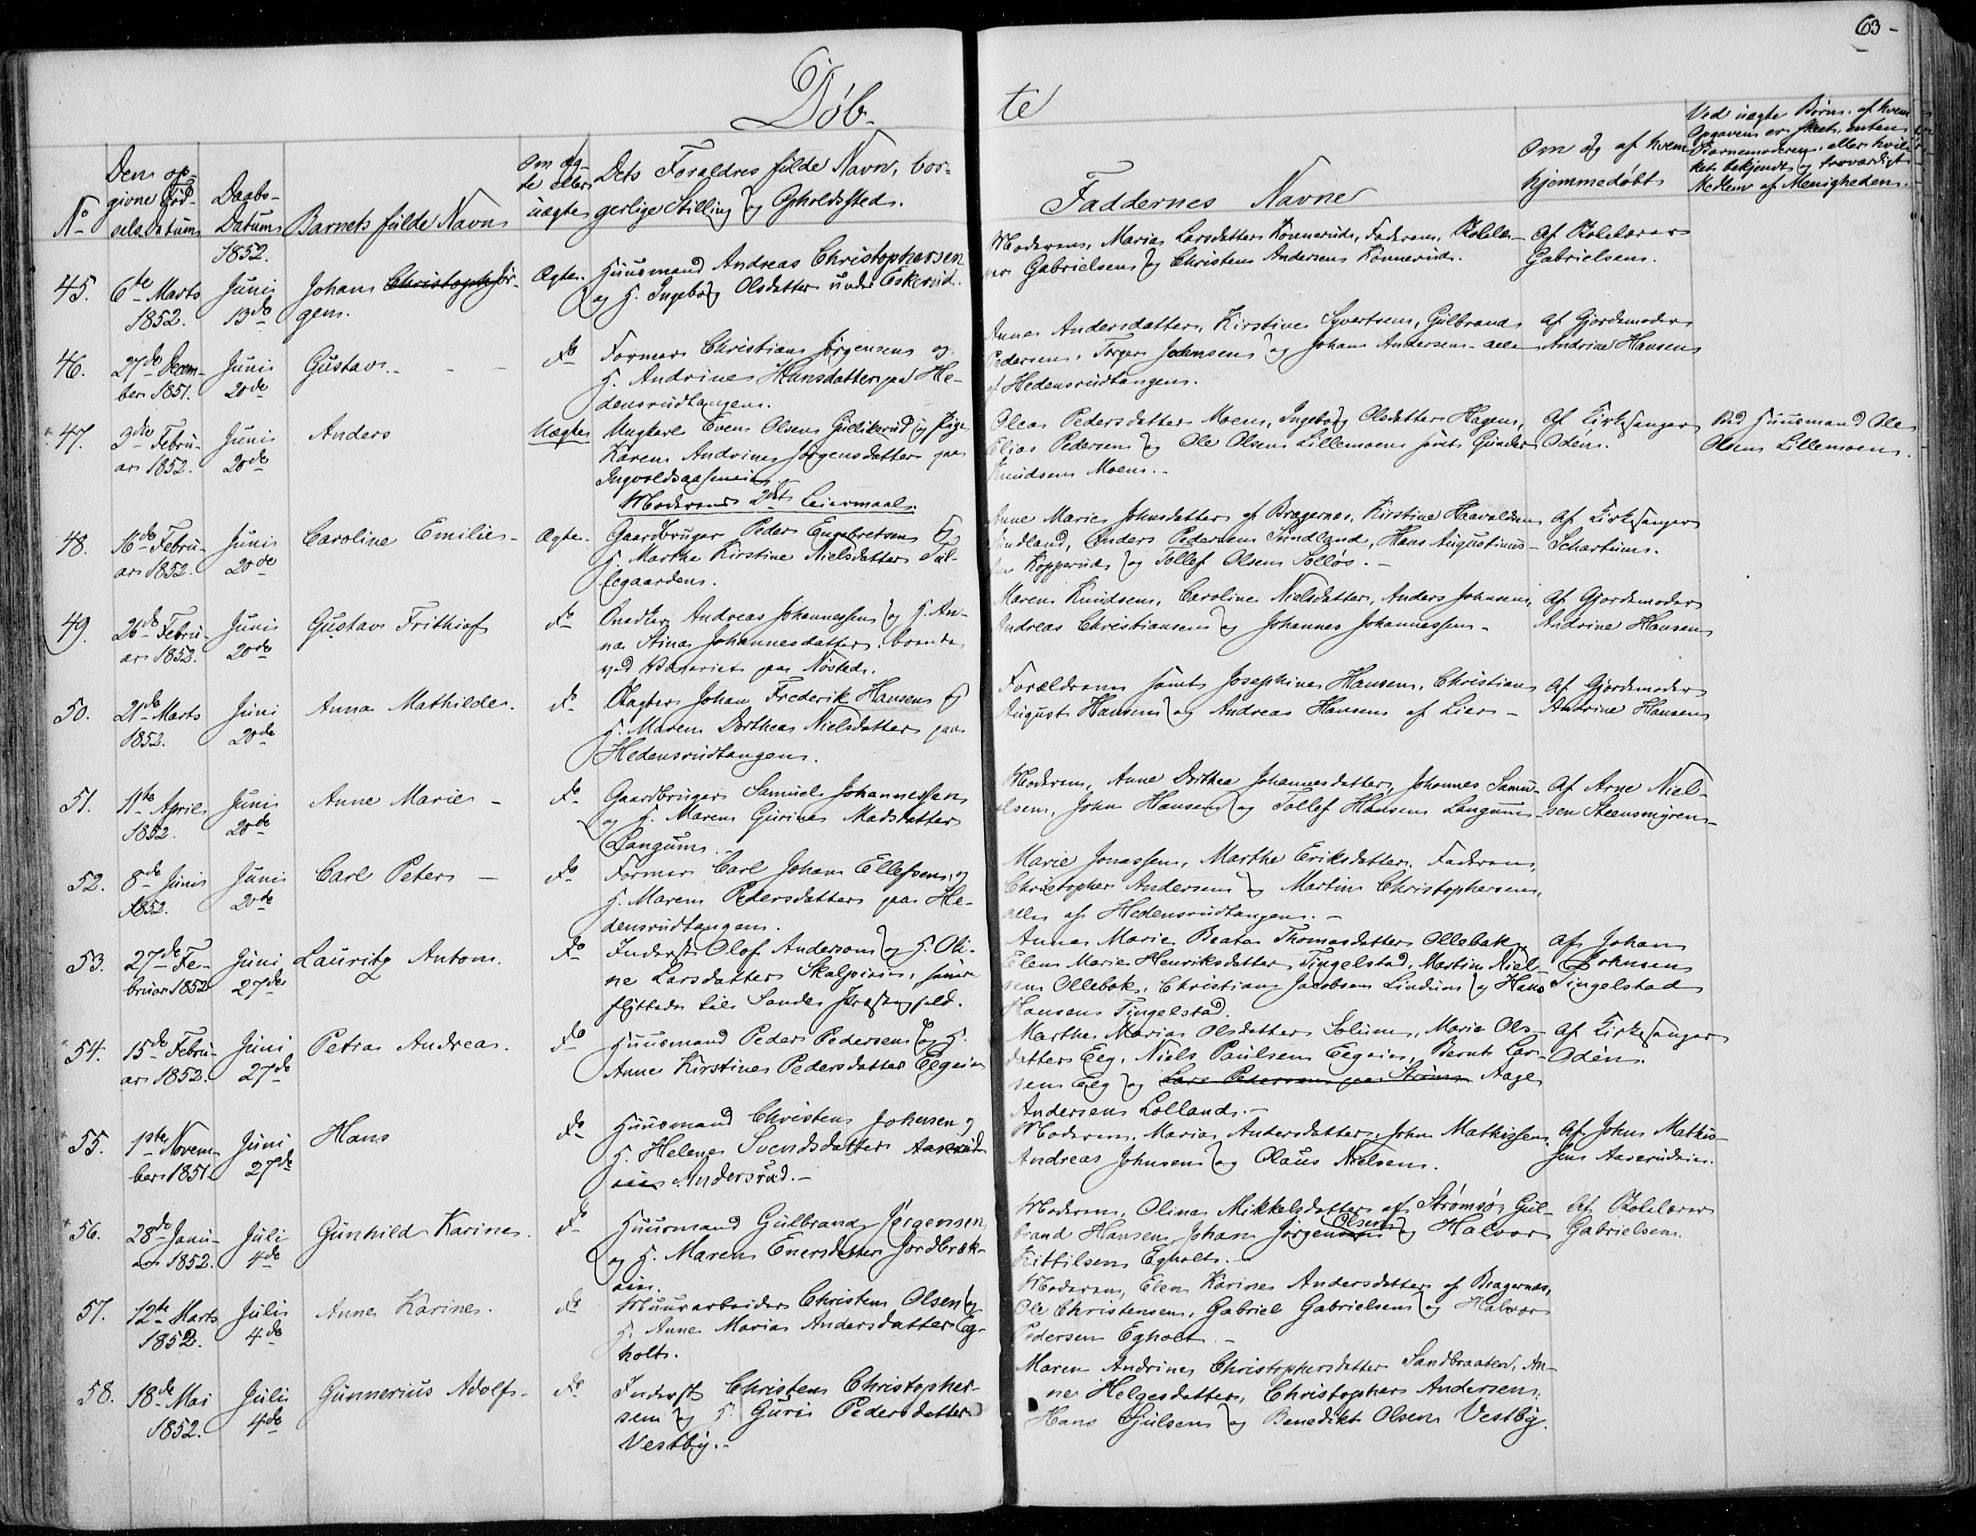 63-
Døb-
te
No
Den op-
givne Fød-
selsdatum
Daabs-
Datum
1852.
Barnets fulde Navn
Om æg-
te eller
uægte
Dets Foraldres fulde Navn, bor-
gerlige Stilling og Opholdssted.
Faddernes Navne
Om og af hvem
hjemmedøbt
Ved uægte Børn, af hvem
Opgaven er skeet, enten
Barnemoderen, eller hvil-
ket bekjendt og troværdigt
Medlem af Menigheden.
45.
6te Marts
1852.
Juni
13de
Johan Christoph Jör-
gen.
Ægte.
Huusmand Andreas Christophersen
og H. Ingeborg Olsdatter under Eskerud.
Moderen, Maria Larsdatter Konnerud, Faderen, Skolelæ-
rer Gabrielsen og Christen Andersen Konnerud.
Af Skolelærer
Gabrielsen.
46.
27de Decem-
ber 1851.
Juni
20de
Gustav.
do
Former Christian Jørgensen og
H. Andrine Hansdatter paa He-
densrudtangen.
Anne Andersdatter, Kirstine Syvertsen, Gulbrand
Pedersen, Torger Johnsen og Johan Andersen alle
af Hedensrudtangen.
Af Gjordemoder
Andrine Hansen
47.
3die Febru-
ar 1852.
Juni
20de
Anders
Uægte
Ungkarl Even Olsen Gullikrud og Pige
Karen Andrine Jørgensdatter paa
Ingvoldsaaseneie
Moderens 2det Leiermaal.
Olea Pedersdatter Moen, Ingeborg Olsdatter Hagen,
Elias Pedersen og Ole Olsen Lillemoen samt Gunder
Knudsen Moen.
Af Kirkesanger
Oden.
Ved Huusmand Ole
Olsen Lillemoen.
48.
16de Febru-
ar 1852.
Juni
20de
Caroline Emilie
Ægte.
Gaardbruger Peder Engebretsen og
H. Marthe Kirstine Nielsdatter Sul-
legaarden.
Anne Marie Johnsdatter af Bragernes, Kirstine Haavaldsen
Sundland, Anders Pedersen Sundland, Hans Augustinus-
sen Kopperud og Tollef Olsen Solløs.
Af Kirkesanger
Schartum.
49.
26de Febru-
ar 1852.
Juni
20de
Gustav Frithiof
do
Snedker Andreas Johannessen og H. An-
na Stina Johannesdatter, boende
ved Værveriet paa Nøsted.
Maren Knudsen, Caroline Nielsdatter, Anders Johnsen,
Andreas Christiansen og Johannes Johannessen.
Af Gjordemoder
Andrine Hansen
50.
21de Marts
1852.
Juni
20de
Anna Mathilde.
do
Slagter Johan Frederik Hansen og
H. Maren Dorthea Nielsdatter paa
Hedensrudtangen.
Forældrene samt Josephine Hansen, Christian
August Hansen og Andreas Hansen af Lier
Af Gjordemoder
Andrine Hansen
51.
11te April
1852.
Juni
20de
Anne Marie
do
Gaardbruger Samuel Johannessen
og H. Maren Gurine Madsdatter
Langum.
Moderen, Anne Dorthea Johannesdatter, Johannes Samu-
elsen, John Hansen og Tollef Hansen Langum
Af Arne Niel-
sen Steensmyren
52.
8de Juni
1852.
Juni
20de
Carl Peter
do
Former Carl Johan Ellefsen og
H. Maren Pedersdatter paa He-
densrudtangen.
Marie Jonassen, Marthe Eriksdatter, Faderen,
Christopher Andersen og Martin Christophersen,
alle af Hedensrudtangen.
53.
27de Fe-
bruar 1852
Juni
27de
Lauritz Anton.
do
Inderst Olof Anderson og H. Oli-
ne Larsdatter Skalpeien, senere
flyttede til Sande Præstegjeld.
Anne Marie Beate Thomasdatter Ollebak,
Elen Marie Henriksdatter Tingelstad, Martin Niel-
sen Ollebak, Christian Jacobsen Lindum og Hans
Hansen Tingelstad.
Af Johan
Johnsen
Tingelstad
54.
15de Febru-
ar 1852.
Juni
27de
Petra Andrea.
do
Huusmand Peder Pedersen og H.
Anne Kirstine Pedersdatter Eegeie
Marthe Maria Olsdatter Solum, Marie Ols-
datter Eeg, Niels Paulsen Eegeie, Bernt Lar-
sen Eeg og Lars Pedersen paa Strøms Aage
Andersen Lolland.
Af Kirkesanger
Oden.
55.
1ste Novem-
ber 1851
Juni
27de
Hans
do
Huusmand Christen Johnsen og
H. Helene Svendsdatter Aaserud
eie Andersrud.
Moderen, Maria Andersdatter, John Mathissen,
Andreas Johnsen og Olaus Nielsen.
Af John Mathis-
sen Aaserudeie.
56.
28de Janu-
ar 1852.
Juli
4de
Gunhild Karine.
do
Huusmand Gulbrand Jørgensen
og H. Maren Enersdatter Jordbræk-
eie.
Moderen, Oline Mikkelsdatter af Strømsø, Gul-
brand Hansen, Johan Jørgensen Olsen og Halvor
Kittilsen Egholt.
Af Skolelærer
Gabrielsen.
57.
12te Marts
1852.
Juli
4de
Anne Karine.
do
Muurarbeider Christen Olsen og
H. Anne Maria Andersdatter Eg-
holt.
Moderen, Elen Karine Andersdatter af Bragernes,
Ole Christensen, Gabriel Gabrielsen og Halvor
Pedersen Egholt.
58.
18de Mai
1852.
Juli
4de
Gunnerius Adolf
do
Inderst Christen Christopher-
sen og H. Guri Pedersdatter
Vestby.
Maren Andrine Christophersdatter Sandbraaten, An-
ne Helgesdatter, Christopher Andersen,
Hans Gulsen og Benedikt Olsen Vestby.